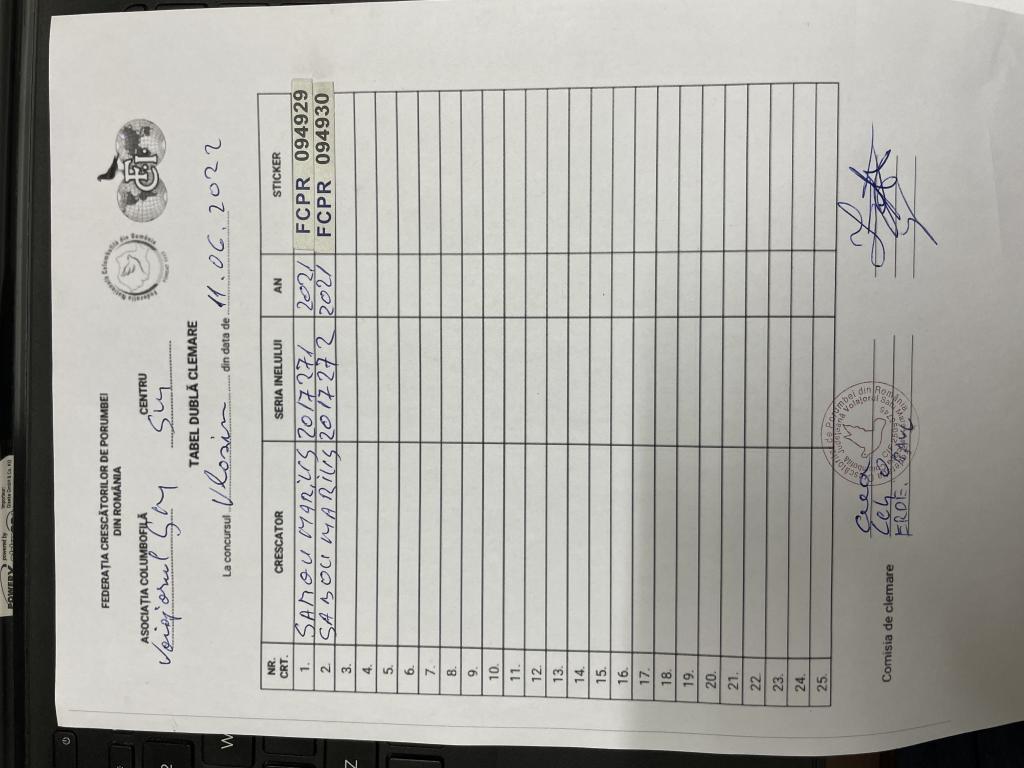 FEDERAȚIA CRESCĂTORILOR DE PORUMBEI
DIN ROMÂNIA
Federația Națională Columbofilă din România
FCPR
ASOCIAȚIA COLUMBOFILĂ CENTRU
Voiajorul SM SM
TABEL DUBLĂ CLEMARE
La concursul Vlasin din data de 11.06.2022
NR. CRT. CRESCATOR SERIA INELULUI AN STICKER
1. SABOU MARIUS 2017271 2021 FCPR 094929
2. SABOU MARIUS 2017272 2021 FCPR 094930
3.
4.
5.
6.
7.
8.
9.
10.
11.
12.
13.
14.
15.
16.
17.
18.
19.
20.
21.
22.
23.
24.
25.
Comisia de clemare
W
Z